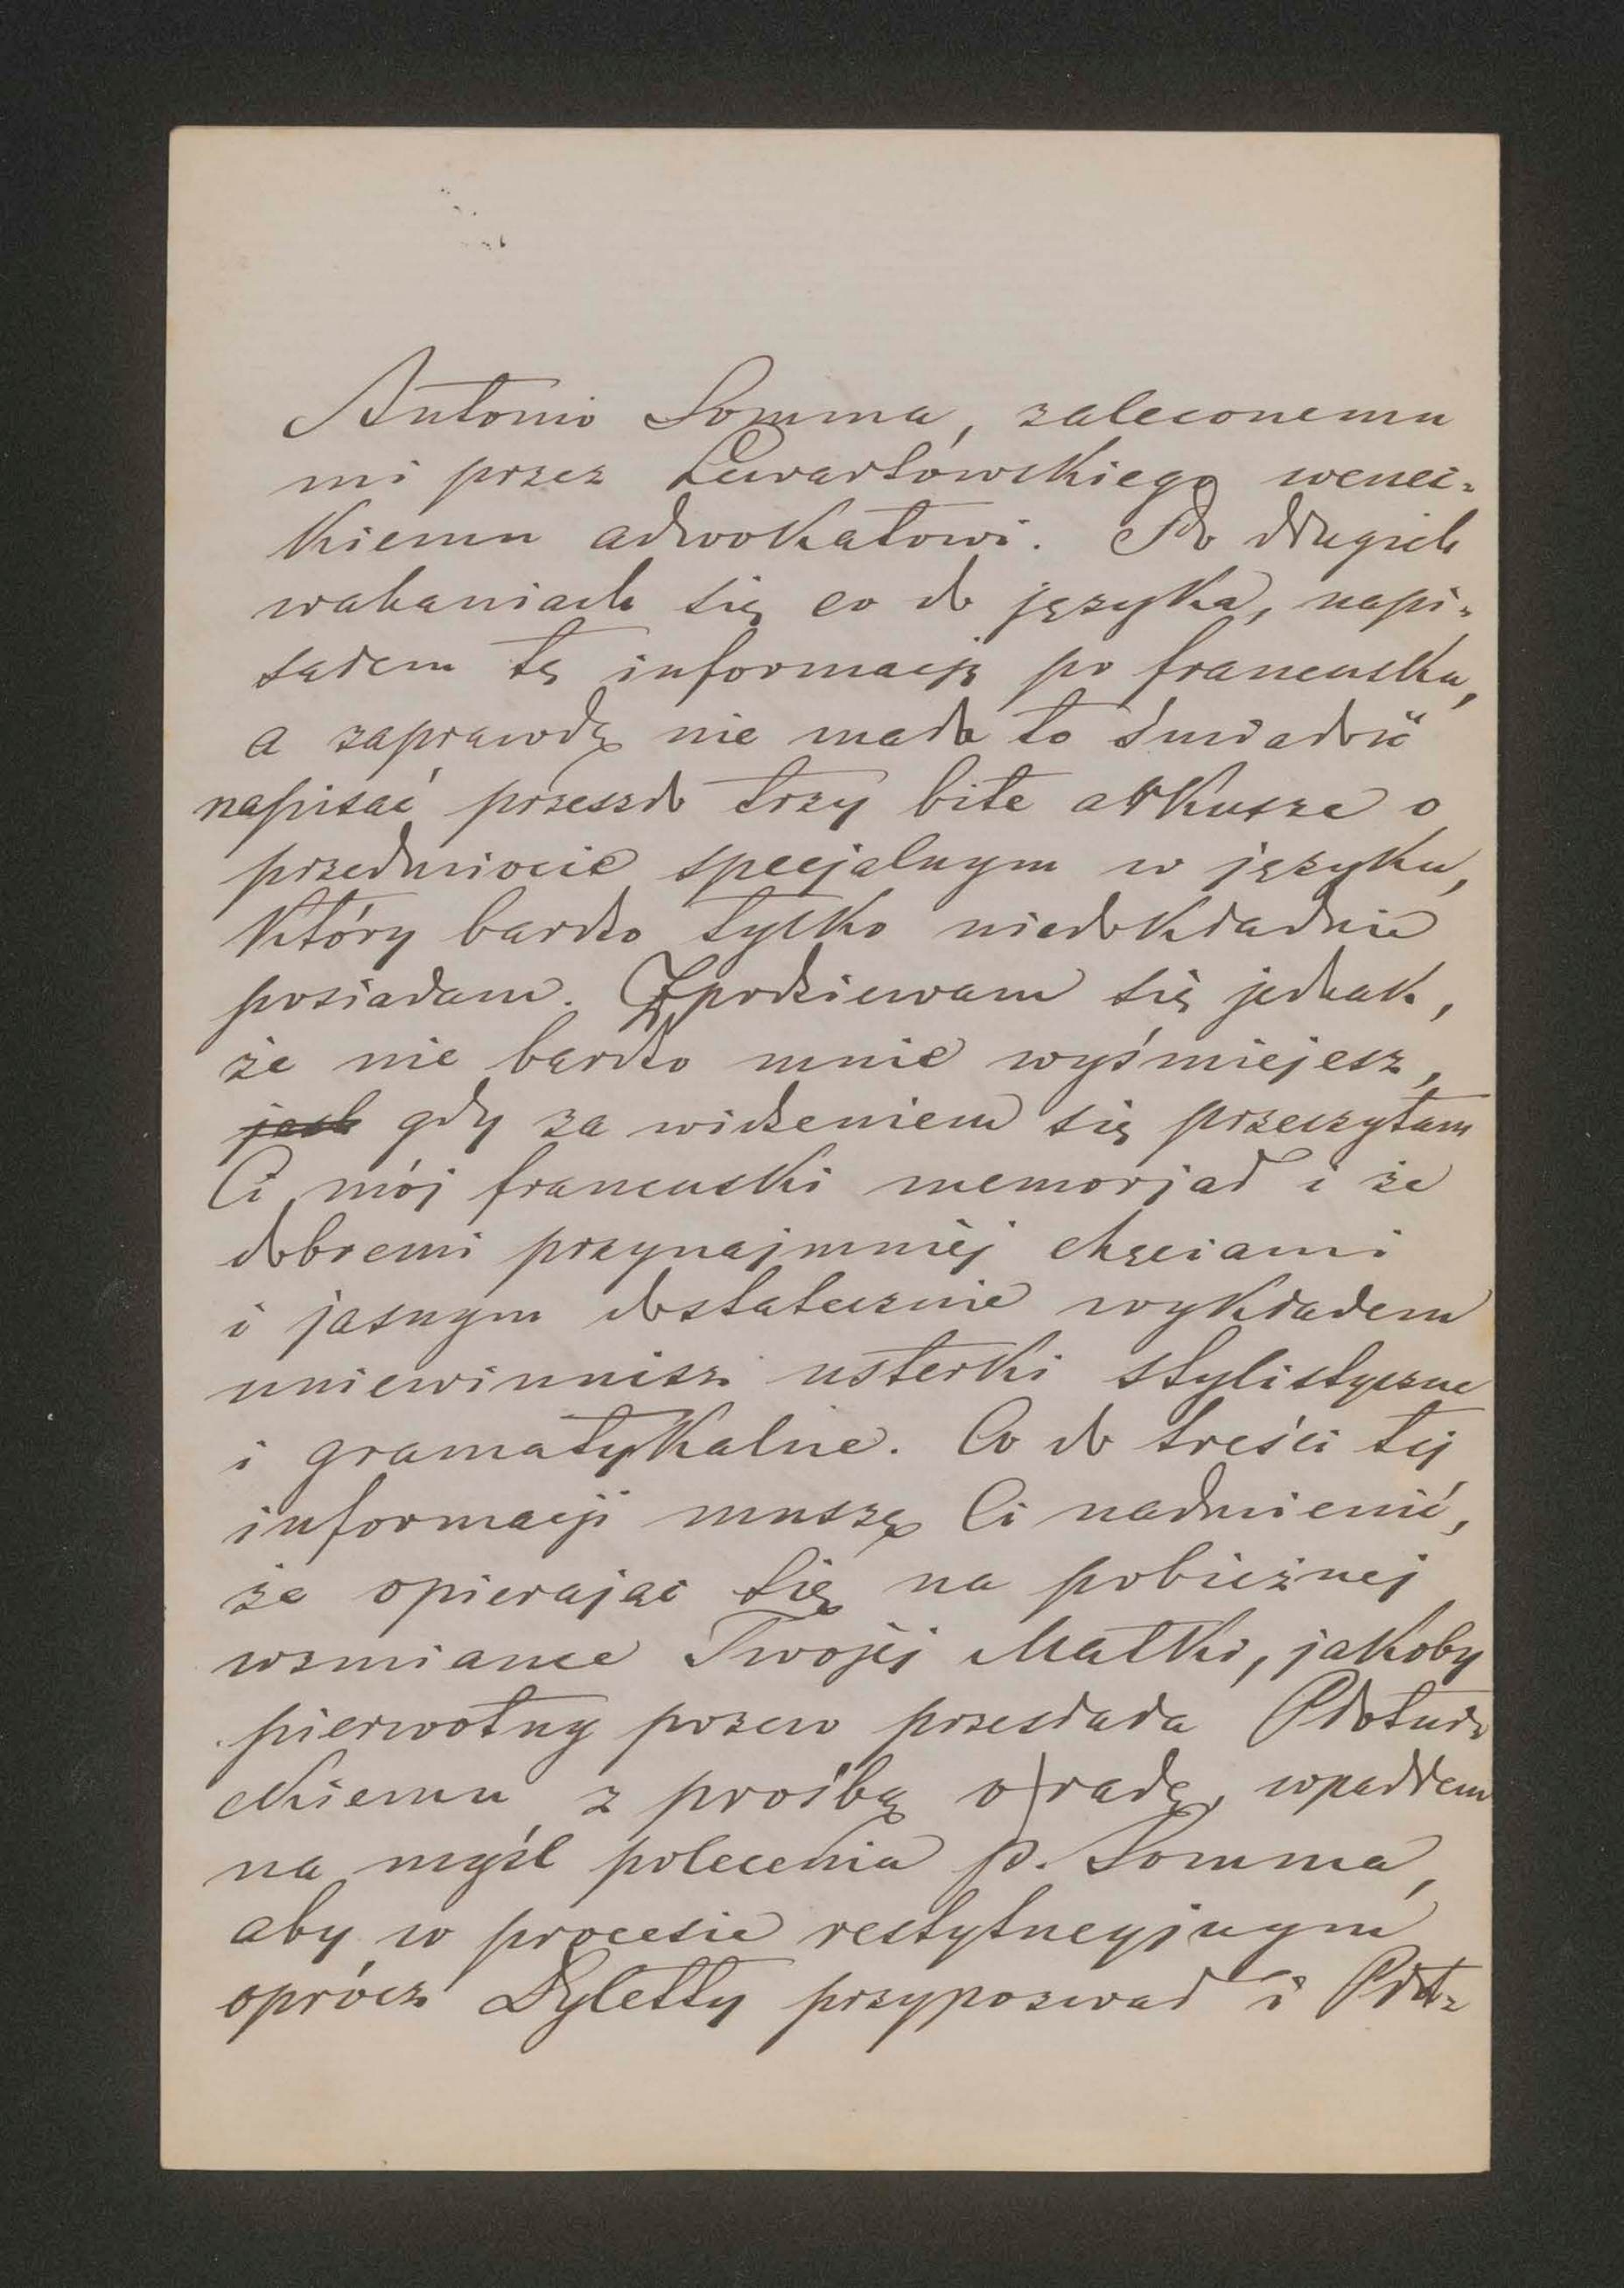 Antonio Somma, zaleconemu
mi przez Lewartowskiego wenec-
kiemu adwokatowi. Po długich
wahaniach się co do języka, napi-
sałem tę informację po francusku,
a zaprawdę nie mała to śmiałość
napisać przeszło trzy bite arkusze o
przedmiocie specjalnym w języku,
który bardzo tylko niedokładnie
posiadam. Spodziewam się jednak,
że nie bardzo mnie wyśmiejesz,
gdy za widzeniem się przeczytam
Ci mój francuski memorjał i że
dobremi przynajmniej chęciami
i jasnym dostatecznie wykładem
uniewinnisz usterki stylistyczne
i gramatykalne. Co do treści tej
informacji muszę Ci nadmienić,
że opierając się na pobieżnej
wzmiance Twojej Matki, jakoby
pierwotny pozew przesłała
ckiemu z prośbą o radę, wpadłem
na myśl polecenia p. Somma,
aby w procesie restytucyjnym
oprócz Dyletty przypozwał i